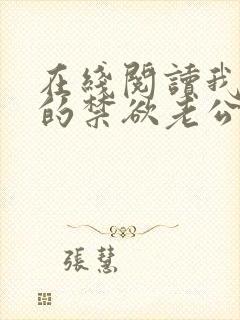 在綫閱讀我
的禁欲老公
張慧